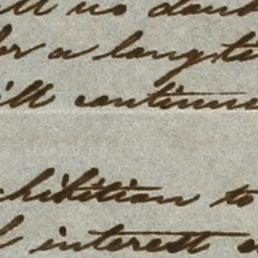 ll no doub
or a long ti
ill continue
chibition to
l interest a